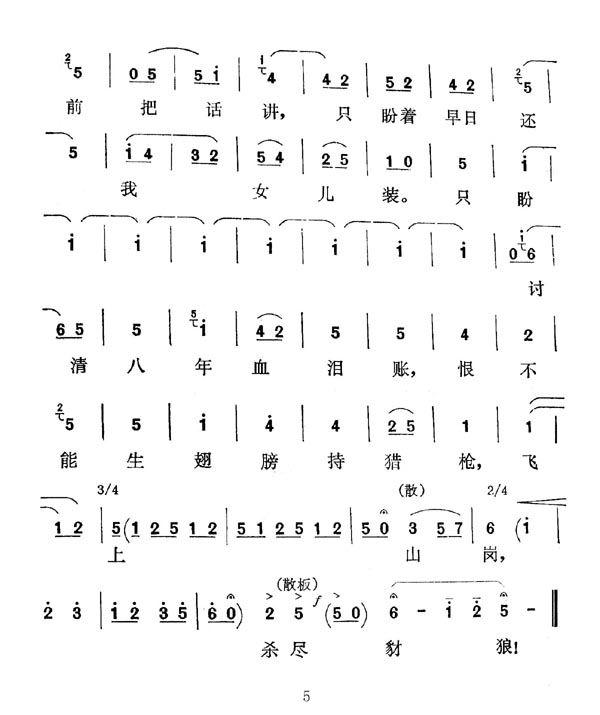 5 | 0 5 | 5 i | 4 | 4 2 | 5 2 | 4 2 | 5
前 把 话 讲， 只 盼着 早日 还
5 | i 4 | 3 2 | 5 4 | 2 5 | 1 0 | 5 | i
我 女 儿 装。 只 盼
i | i | i | i | i | i | i | 0 6
讨
6 5 | 5 | i | 4 2 | 5 | 5 | 4 | 2
清 八 年 血 泪 账， 恨 不
5 | 5 | i | 4 | 4 | 2 5 | 1 | 1
能 生 翅 膀 持 猎 枪， 飞
3/4 (散) 2/4
1 2 | 5 (1 2 5 1 2 | 5 1 2 5 1 2 | 5 0 3 5 7 | 6 (i
上 山 岗，
(散板)
2 3 | i 2 3 5 | 6 0) 2 5 f (5 0) 6 - i 2 5 -
杀 尽 豺 狼!
5